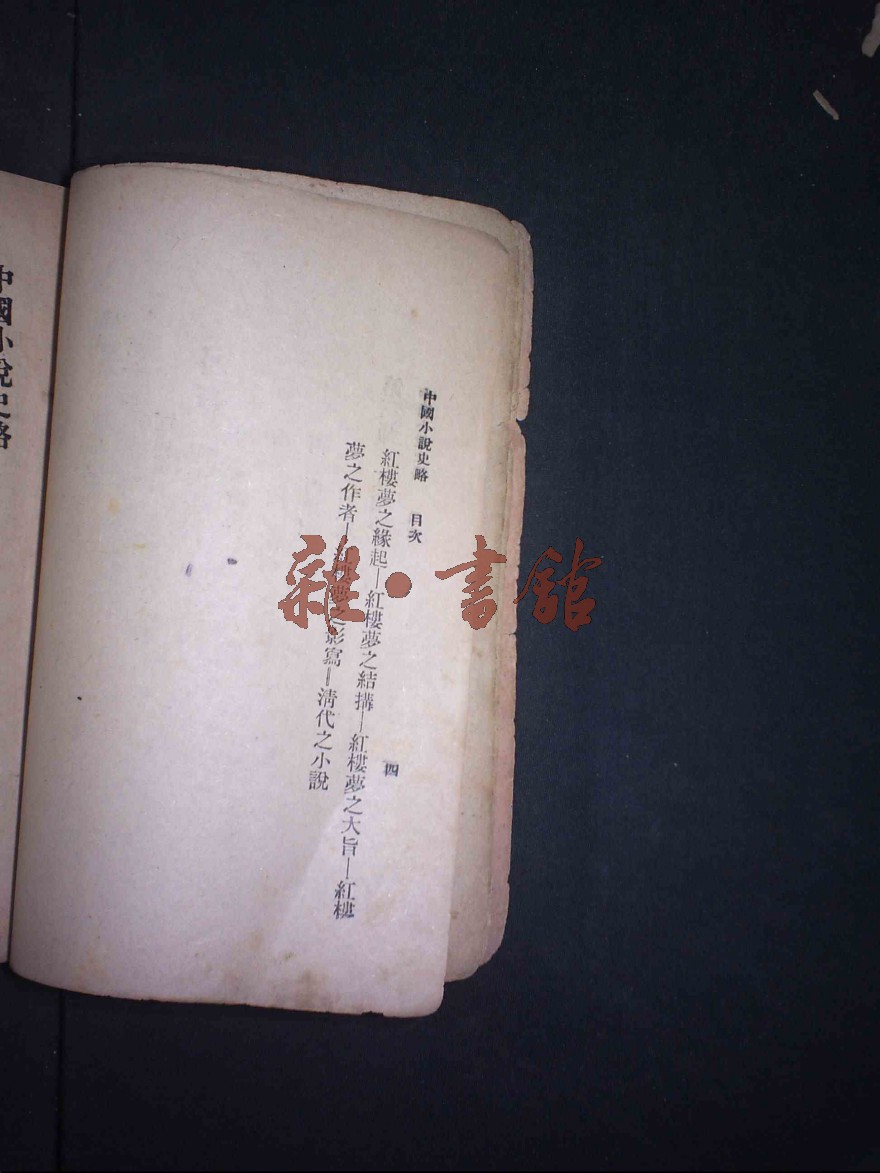 中國小說史略　目次
四
紅樓夢之緣起—紅樓夢之結搆—紅樓夢之大旨—紅樓
夢之作者—紅樓夢之影寫—清代之小說
中國小說史略
雜·書館